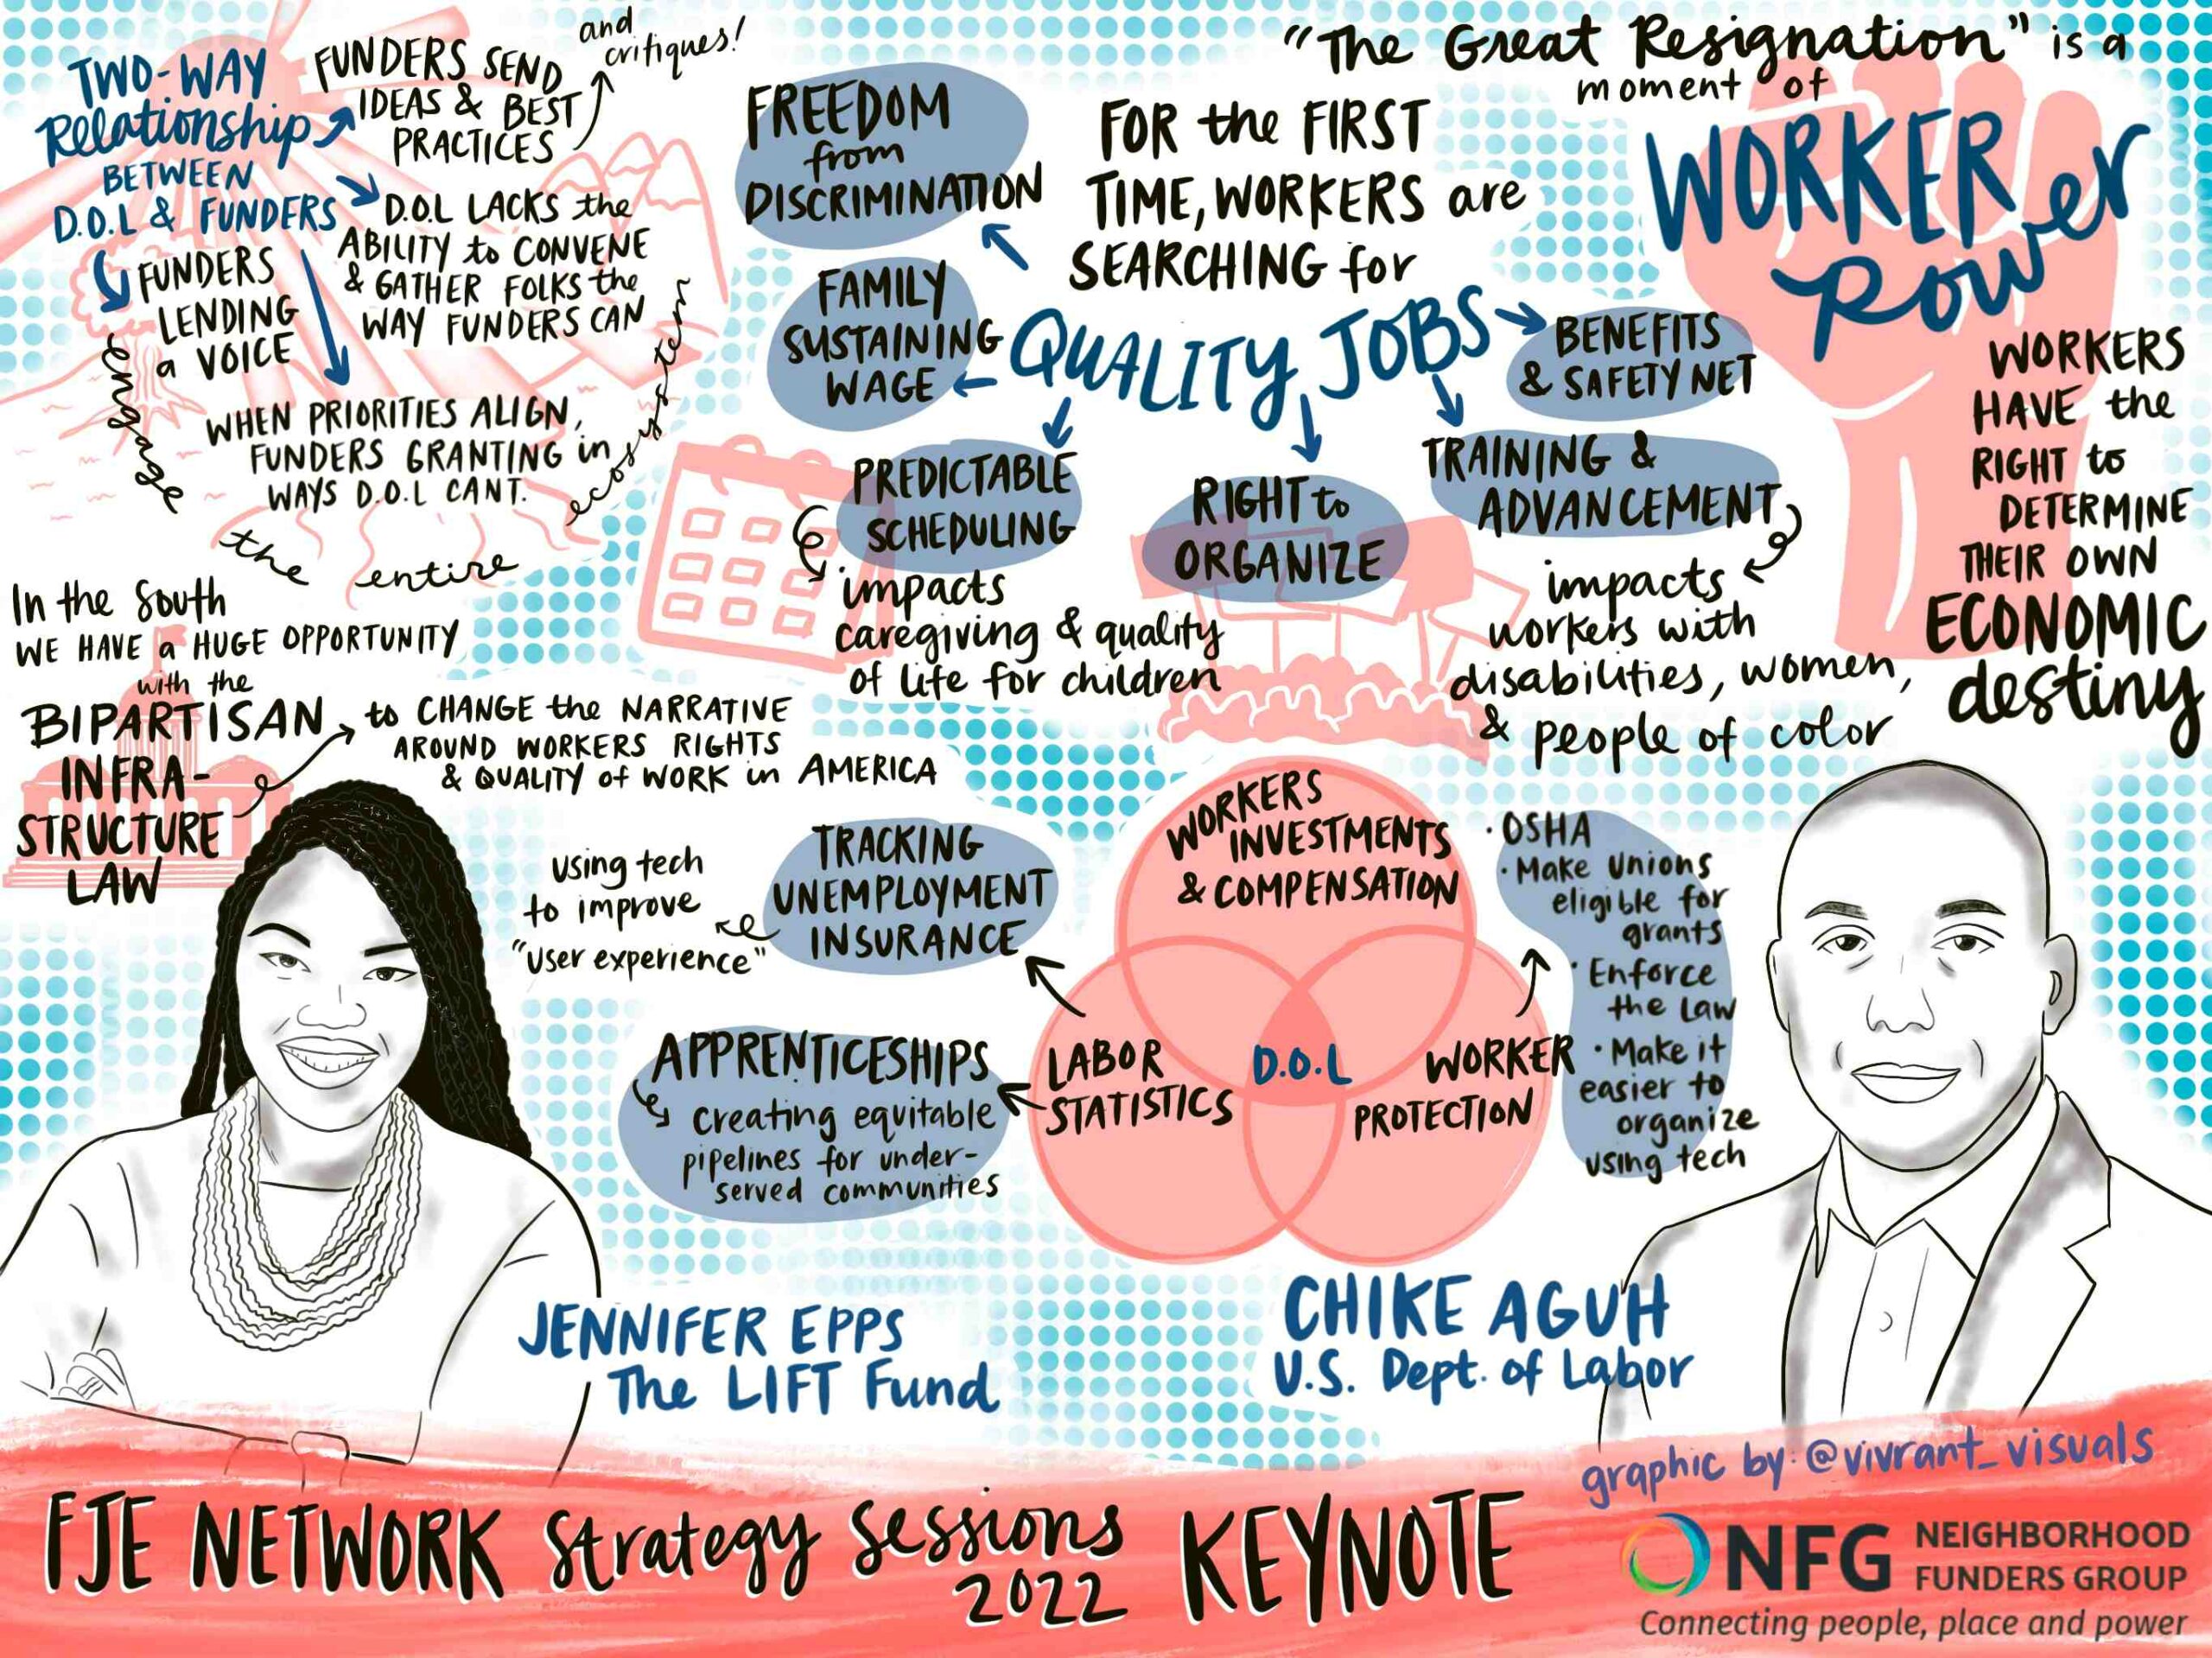 TWO-WAY
Relationship
BETWEEN
D.O.L & FUNDERS
FUNDERS SEND
IDEAS & BEST
PRACTICES
and
critiques!
D.O.L LACKS the
ABILITY to CONVENE
& GATHER FOLKS the
WAY FUNDERS CAN
FUNDERS
LENDING
a VOICE
WHEN PRIORITIES ALIGN,
FUNDERS GRANTING in
WAYS D.O.L CANT.
engage
the entire
ecosystem
In the South
WE HAVE a HUGE OPPORTUNITY
with the
BIPARTISAN
INFRA-
STRUCTURE
LAW
to CHANGE the NARRATIVE
AROUND WORKERS RIGHTS
& QUALITY of WORK in AMERICA
"The Great Resignation" is a
moment of
WORKER
Power
WORKERS
HAVE the
RIGHT to
DETERMINE
THEIR OWN
ECONOMIC
destiny
FOR the FIRST
TIME, WORKERS are
SEARCHING for
QUALITY JOBS
FREEDOM
from
DISCRIMINATION
FAMILY
SUSTAINING
WAGE
PREDICTABLE
SCHEDULING
impacts
caregiving & quality
of life for children
RIGHT to
ORGANIZE
BENEFITS
& SAFETY NET
TRAINING &
ADVANCEMENT
impacts
workers with
disabilities, women,
& people of color
WORKERS
INVESTMENTS
& COMPENSATION
LABOR
STATISTICS
D.O.L
WORKER
PROTECTION
TRACKING
UNEMPLOYMENT
INSURANCE
using tech
to improve
"user experience"
APPRENTICESHIPS
creating equitable
pipelines for under-
served communities
· OSHA
· Make Unions
eligible for
grants
· Enforce
the Law
· Make it
easier to
organize
using tech
JENNIFER EPPS
The LIFT Fund
CHIKE AGUH
U.S. Dept. of Labor
graphic by: @vivrant_visuals
FJE NETWORK Strategy Sessions
2022
KEYNOTE
NFG
NEIGHBORHOOD
FUNDERS GROUP
Connecting people, place and power